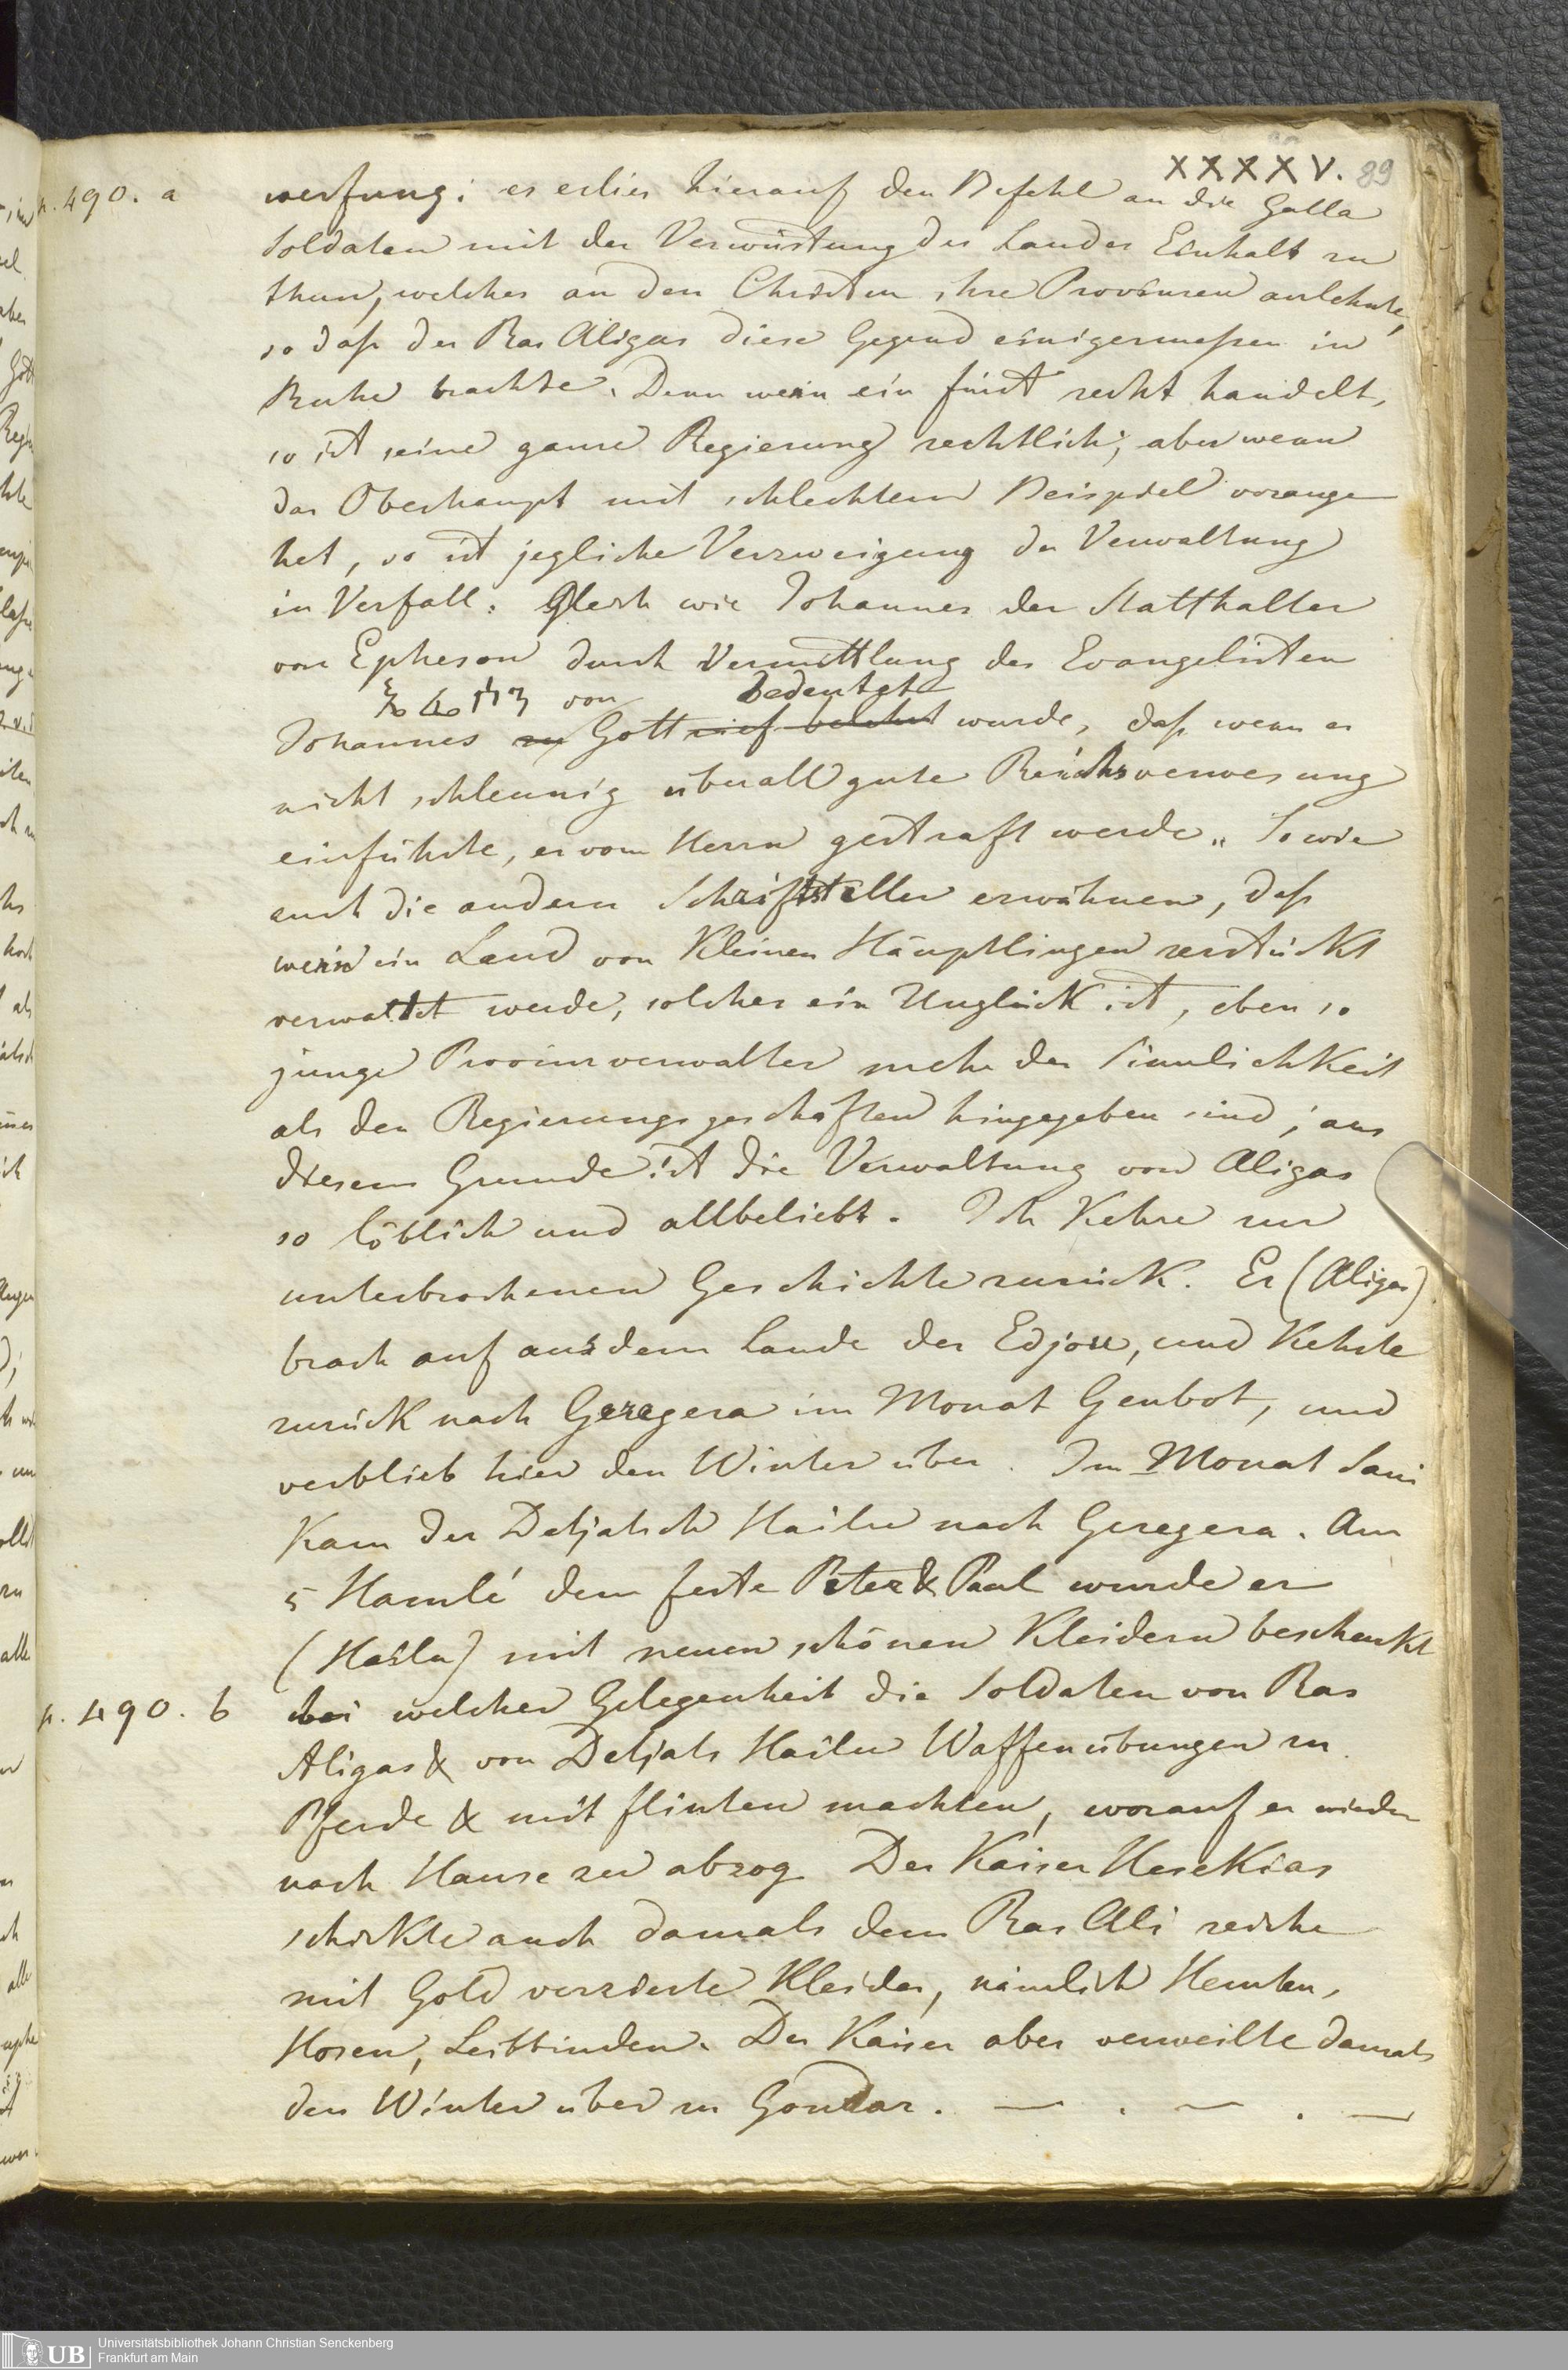 XXXXV. 89
p. 490. a werfung; er erlies hierauf den Befehl an die Galla
Soldaten mit der Verwüstung des Landes Einhalt zu
thun, welches an den Christen ihre Provinzen anlehnte,
so daß der Ras Aligas diese Gegend einigermaßen in
Ruhe brachte. Denn wenn ein Fürst recht handelt,
so ist seine ganze Regierung rechtlich; aber wenn
das Oberhaupt mit schlechtem Beispiel vorange
het, so ist jegliche Verzweigung der Verwaltung
in Verfall. Gleich wie Johannes der Statthalter
von Epheson durch Vermittlung des Evangelisten
von bedeutet
Johannes zu Gott belehrt wurde, daß wenn er
nicht schleunig überall gute Reichsverwesung
einführte, er vom Herrn gestraft werde. So wie
auch die andern Schriftsteller erwähnen, daß
wenn ein Land von Kleinen Häuptlingen zerstückt
verwaltet werde, solches ein Unglück ist, eben so
junge Provinzverwalter mehr der Sinnlichkeit
als den Regierungsgeschäften hingegeben sind; aus
diesem Grunde ist die Verwaltung von Aligas
so löblich und allbeliebt. Ich Kehre zur
unterbrochenen Geschichte zurück. Er (Aligas)
brach auf aus dem Lande der Edjou, und Kehrte
zurück nach Geregera im Monat Genbot, und
verblieb hier den Winter über. Im Monat Sani
Kam der Detjatsch Hailu nach Geregera. Am
5 Hamlé dem Feste Peter & Paul wurde er
(Hailu) mit neuen schönen Kleidern beschenkt
p. 490. b bei welcher Gelegenheit die Soldaten von Ras
Aligas & von Detjats Hailu Waffenübungen zu
Pferde & mit Flinten machten, worauf er wieder
nach Hause zu abzog Der Kaiser Hesekias
schickte auch damals dem Ras Ali reiche
mit Gold verzierte Kleider, nämlich Hemten,
Hosen, Leibbinden. Der Kaiser aber verweilte damals
den Winter über zu Gondar. — . — . —
UB Universitätsbibliothek Johann Christian Senckenberg
Frankfurt am Main